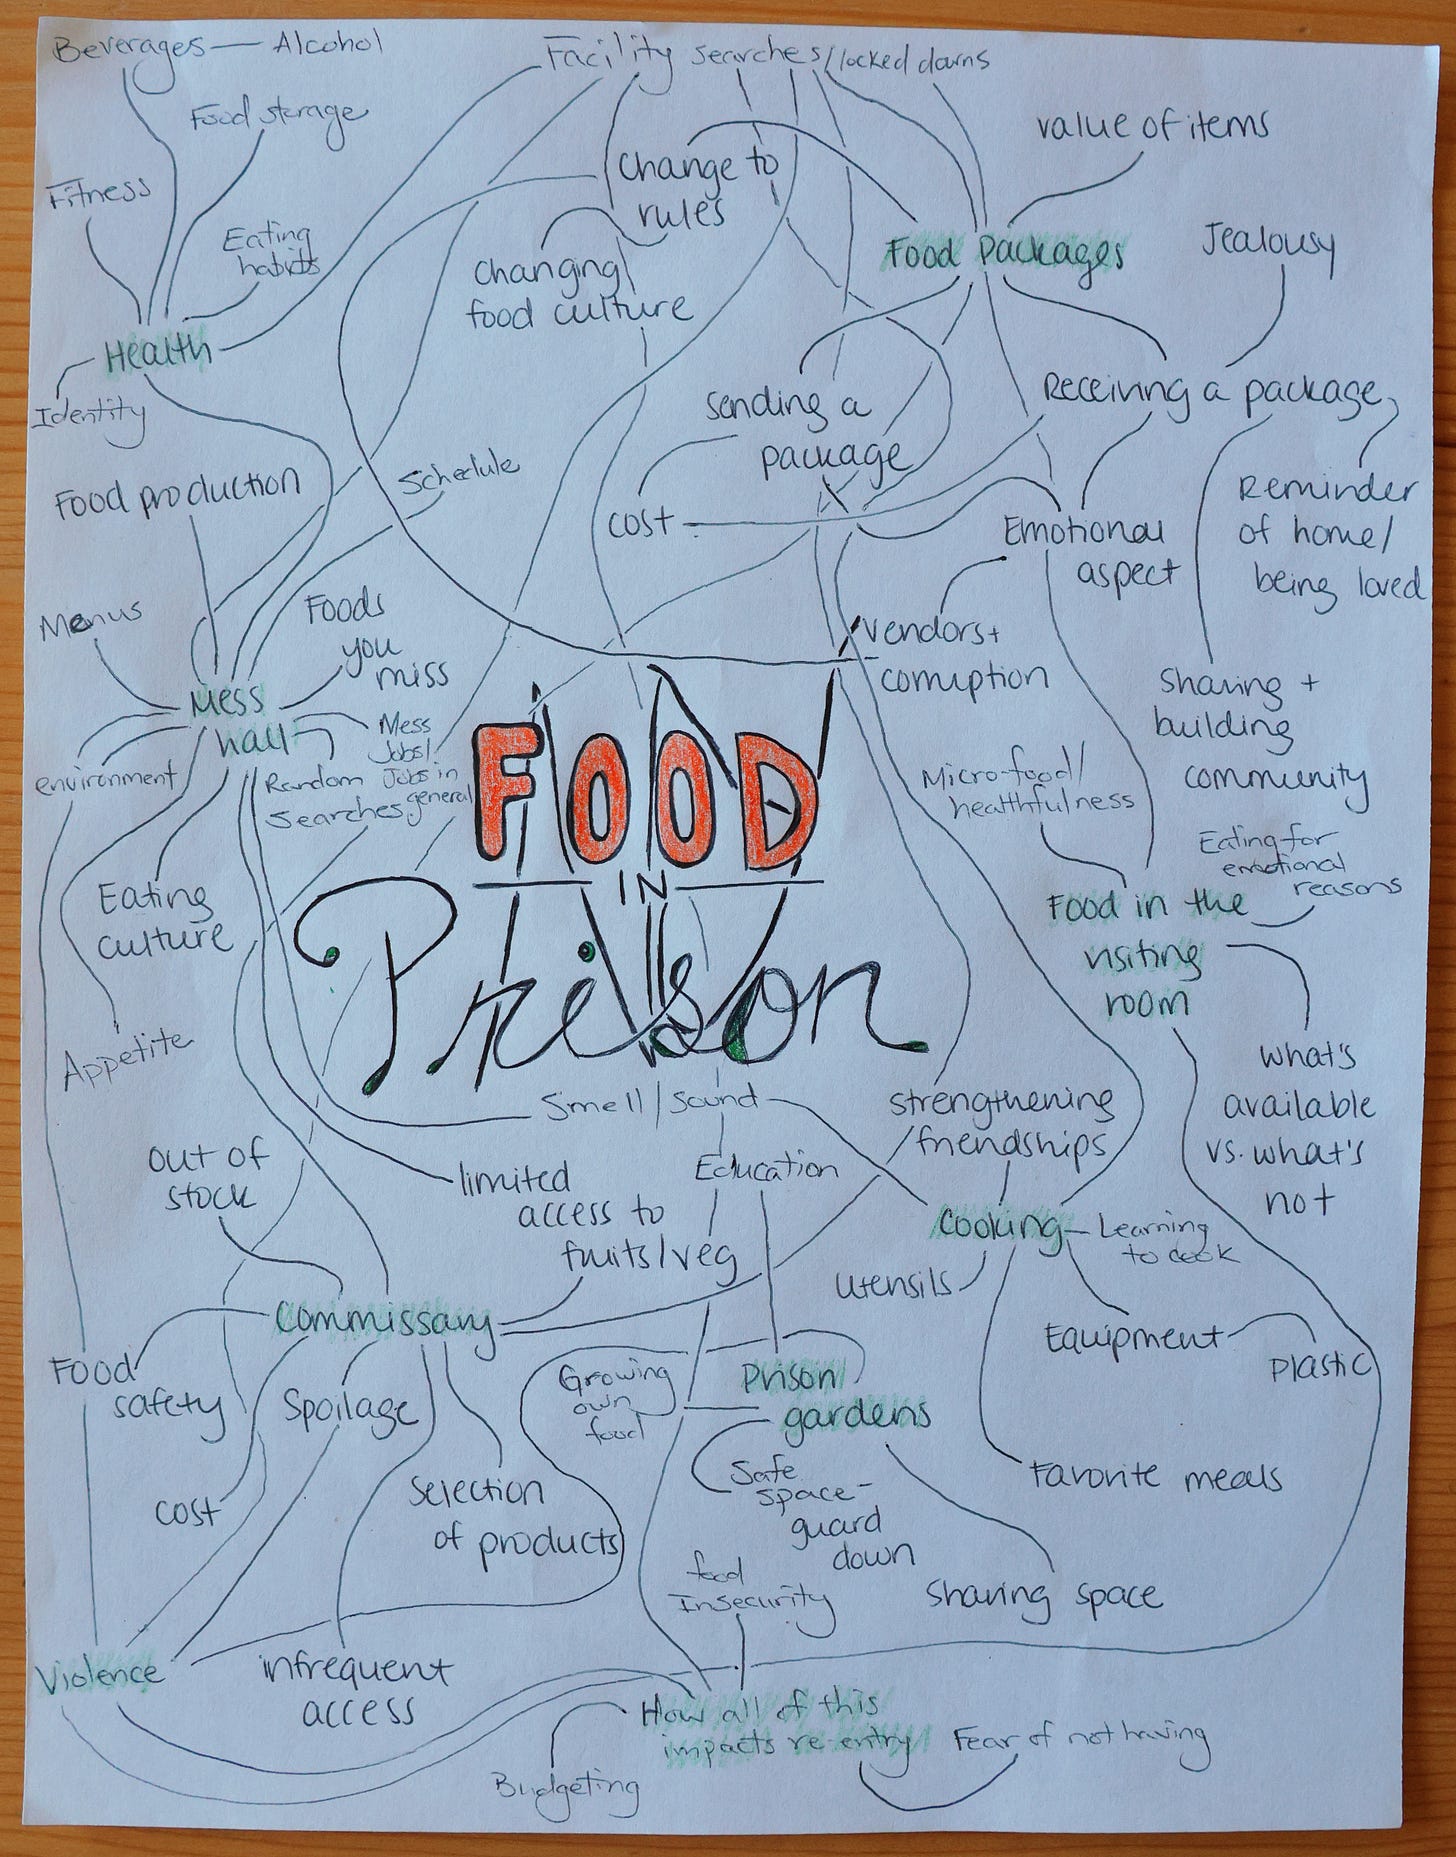 Beverages — Alcohol
Facility searches/locked downs
Food storage
value of items
Change to
rules
Fitness
Eating
habits
Food Packages
Jealousy
Changing
food culture
Health
Identity
Sending a
package
Receiving a package
Food production
Schedule
Reminder
of home/
being loved
cost
Emotional
aspect
Menus
Foods
you
miss
vendors +
corruption
Sharing +
building
community
Mess
hall
Mess
Jobs/
Jobs in
general
environment
Random
Searches
FOOD
IN
Prison
Micro-food/
healthfulness
Eating for
emotional
reasons
Eating
culture
Food in the
visiting
room
Appetite
what's
available
vs. what's
not
Smell/sound
strengthening
/friendships
out of
stock
limited
access to
fruits/veg
Education
Cooking
Learning
to cook
utensils
Commissary
Equipment
Plastic
Food
safety
Spoilage
Growing
own
food
Prison
gardens
Safe
space-
guard
down
Favorite meals
cost
Selection
of products
food
Insecurity
Sharing space
Violence
infrequent
access
How all of this
impacts re-entry
Fear of not having
Budgeting